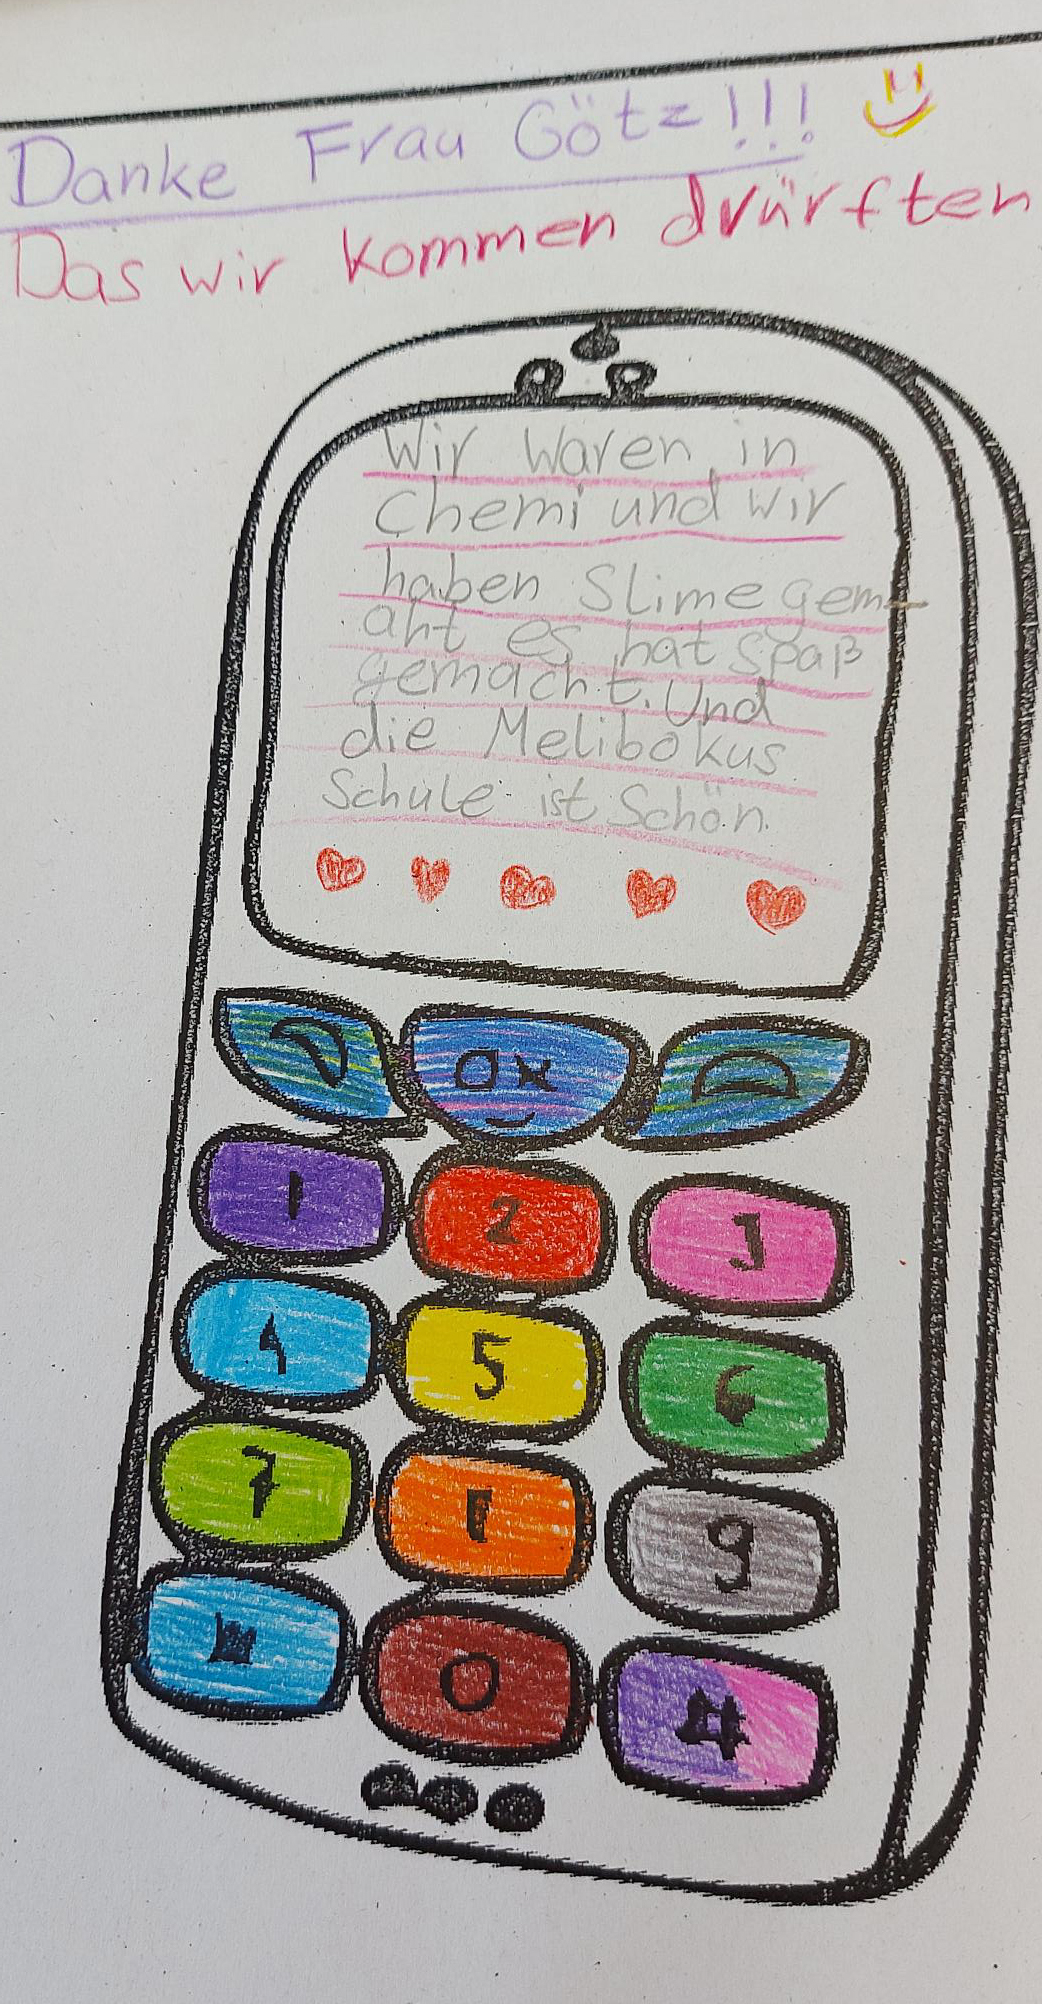 Danke Frau Götz!!!
Das wir kommen drürften
Wir waren in
Chemi und wir
haben Slime gem-
aht es hat spaß
gemacht. Und
die Melibokus
Schule ist Schön.
1 2 3
4 5 6
7 9
0 #